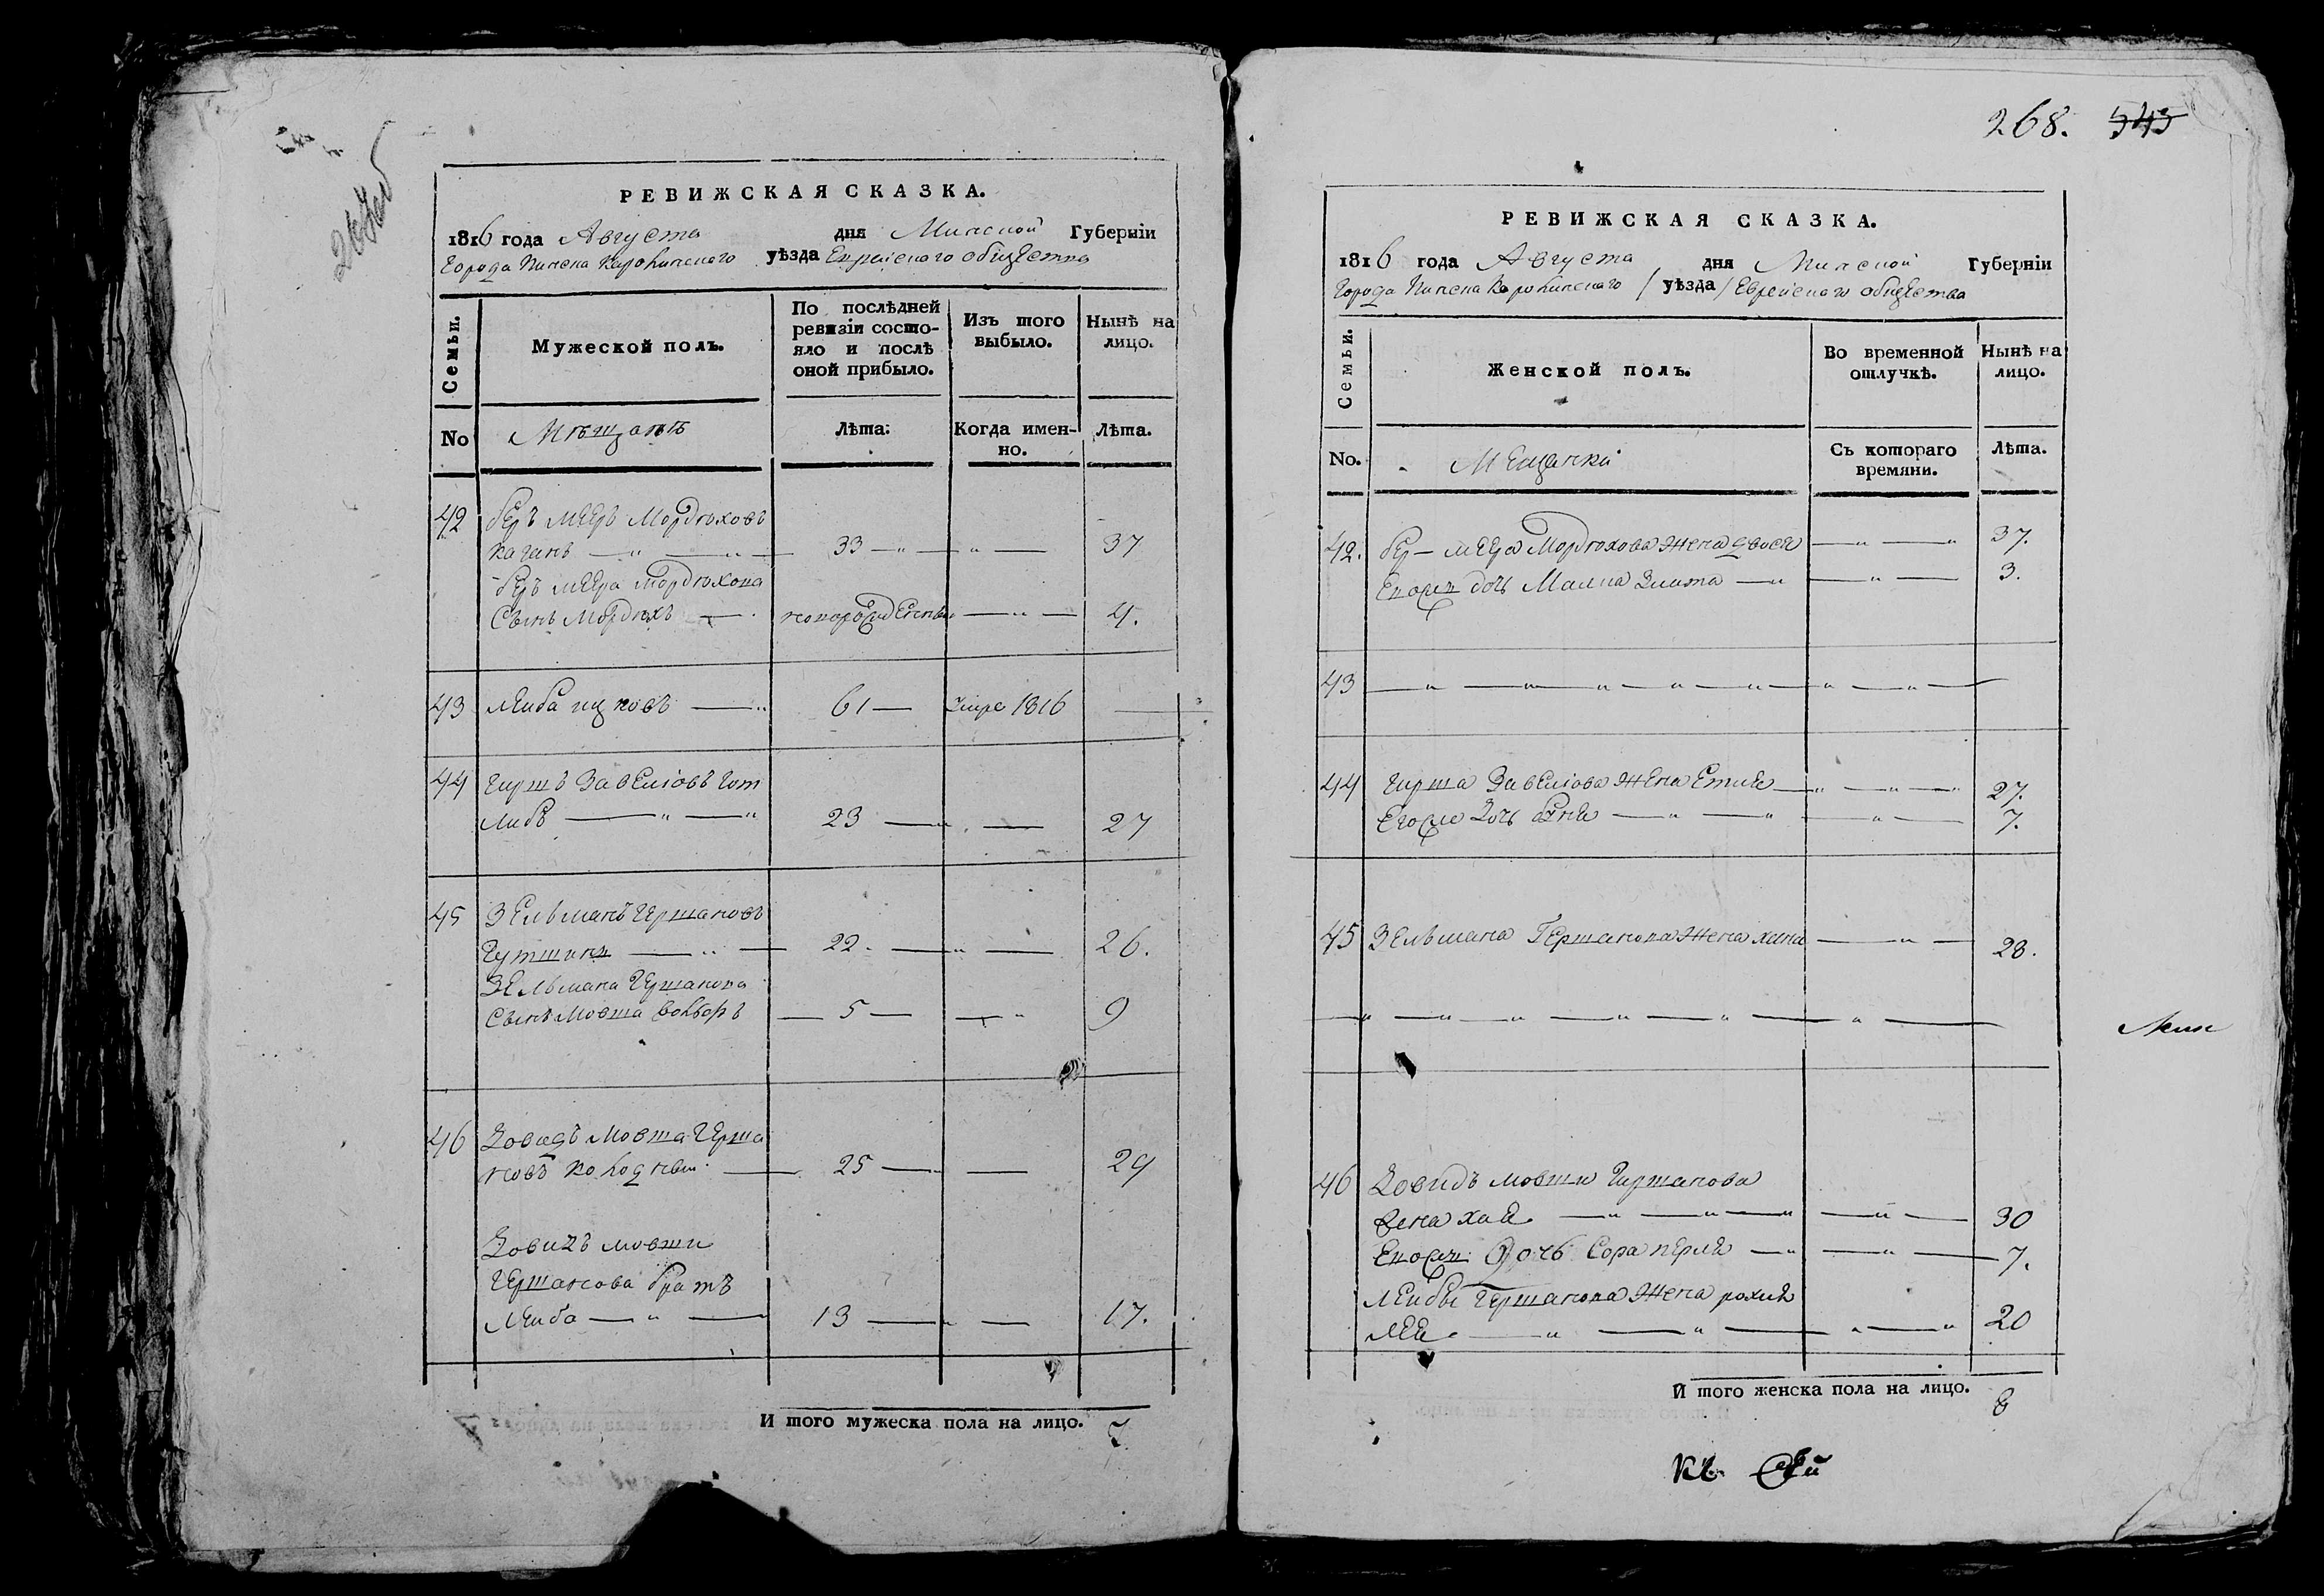 РЕВИЖСКАЯ СКАЗКА.
1816 года Августа дня Минской Губерніи
Города Пинска Каролинского уѣзда Еврейского общества
Семьи.
Мужеской полъ.
По послѣдней ревизіи состояло и послѣ оной прибыло.
Изъ того выбыло.
Нынѣ на лицо.
No
Мѣщанѣ
Лѣта.
Когда именно.
Лѣта.
42 беръ мееръ Мордуховъ
Каганъ — „ — „ — 33 — „ — „ — 37
беръ меера Мордухова
Сынъ Мордухъ — новорожденный — „ — 4.
43 Леиба ицковъ — „ 61 — 1816
44 Гиршъ Завеліовъ Гот
либъ — „ — „ 23 — „ — 27
45 Зельманъ Гершановъ
— „ — 22. — „ — 26.
Зельмана Гершанова
Сынъ Мовша — 5 — — „ 9
46 Довидъ Мовша Герша
новъ — 25 — „ — 29
Довидъ мовши
Гершанова братъ
Леиба — „ — 13 — „ — 17.
И того мужеска пола на лицо. 7
268. 545
РЕВИЖСКАЯ СКАЗКА.
1816 года Августа дня Минской Губерніи
Города Пинска Каролинского / уѣзда / Еврейского общества
Семьи.
Женской полъ.
Во временной отлучкѣ.
Нынѣ на лицо.
No.
Мещанки
Съ котораго времяни.
Лѣта.
42. бер — меера Мордухова жена двося — „ — „ 37.
дочь Малка Злата — „ — „ — 3.
43 — „ — „ — „ — „ — „ — „ — „ —
44 Гирша Завеліова жена Етля — „ — „ — „ 27.
Его же дочь — „ — „ — „ — 7.
45 Зельмана Гершанова жена хана — „ — 28.
— „ — „ — „ — „ — „ — „ —
46 Довидъ мовши Гиршанова
жена хая — „ — „ — „ — „ — 30
дочь Сора перля — „ — „ — 7.
Леибы Гершанова жена рохля
лея — „ — „ — „ — „ 20
И того женска пола на лицо. 8